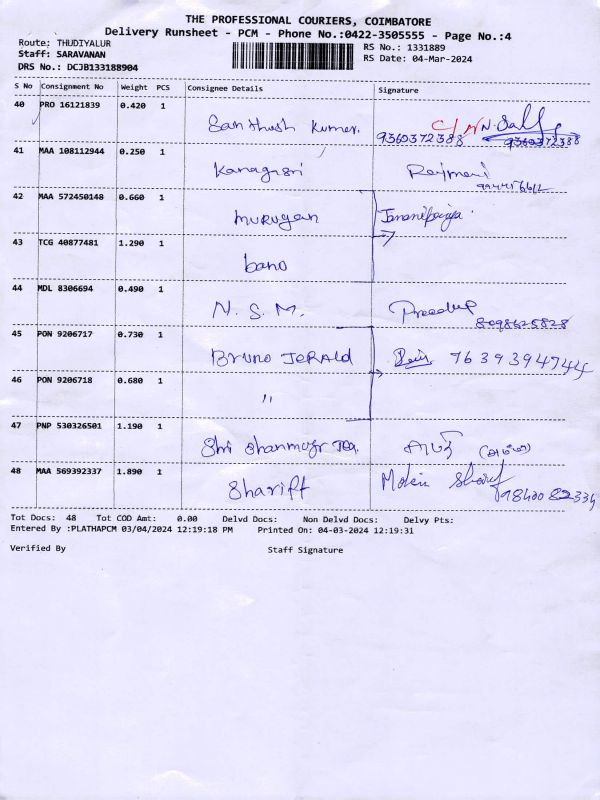 THE PROFESSIONAL COURIERS, COIMBATORE
Delivery Runsheet - PCM - Phone No.:0422-3505555 - Page No.:4
Route: THUDIYALUR
RS No.: 1331889
Staff: SARAVANAN
RS Date: 04-Mar-2024
DRS No.: DCJB133188904
S No Consignment No Weight PCS Consignee Details Signature
40 PRO 16121839 0.420 1 Santhush Kumar. 9360372388 9360372388
41 MAA 108112944 0.250 1 Kanagasri Rajmani
42 MAA 572450148 0.660 1 Murugan
43 TCG 40877481 1.290 1 bano
44 MDL 8306694 0.490 1 N. S. M. 8098625828
45 PON 9206717 0.730 1 Bruno Jerald 7639394744
46 PON 9206718 0.680 1 "
47 PNP 530326501 1.190 1 Shri Shanmuga
48 MAA 569392337 1.890 1 Shariff
Tot Docs: 48 Tot COD Amt: 0.00 Delvd Docs: Non Delvd Docs: Delvy Pts:
Entered By :PLATHAPCM 03/04/2024 12:19:18 PM Printed On: 04-03-2024 12:19:31
Verified By Staff Signature